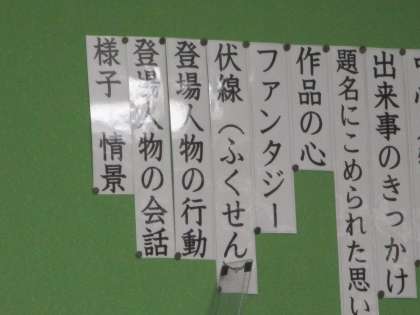 出来事のきっかけ
題名にこめられた思い
作品の心
ファンタジー
伏線（ふくせん
登場人物の行動
登場人物の会話
様子 情景